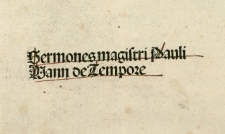 Sermones magistri Pauli
Wann de Tempore